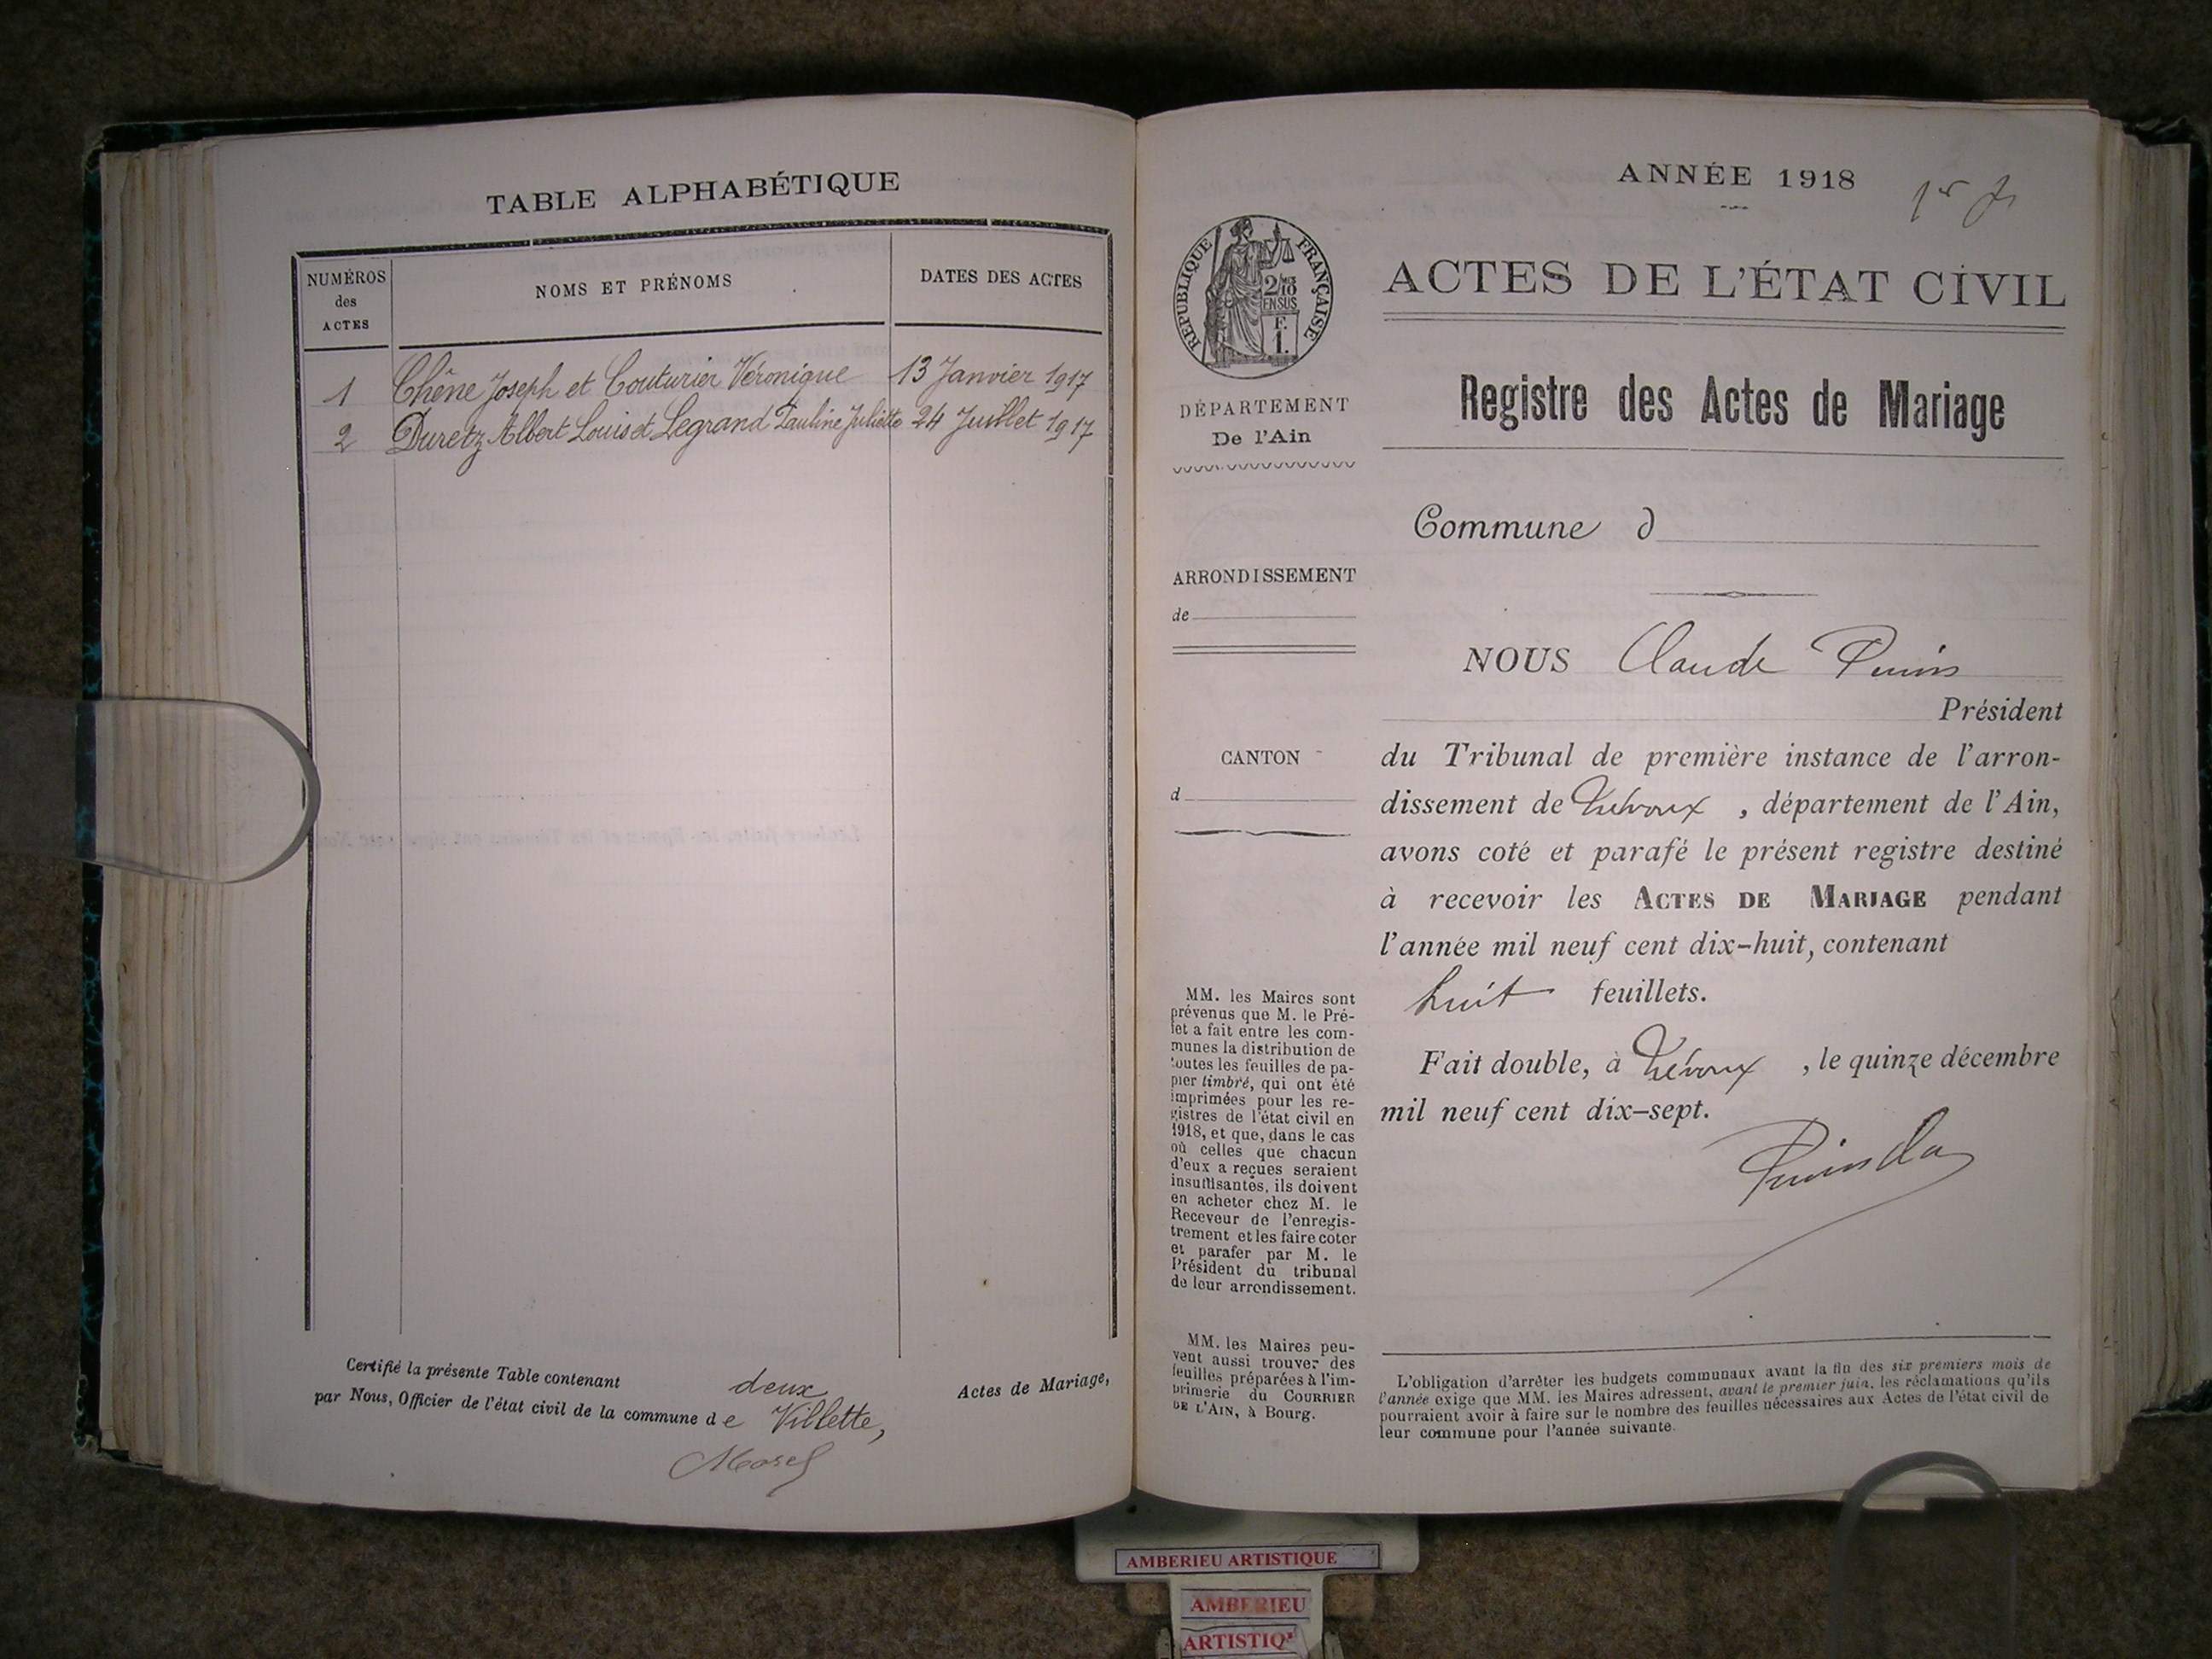 TABLE ALPHABÉTIQUE
NUMÉROS
des
ACTES
NOMS ET PRÉNOMS
DATES DES ACTES
1 Chêne Joseph et Couturier Véronique 13 Janvier 1917
2 Duretz Albert Louis et Legrand Pauline Juliette 24 Juillet 1917
Certifié la présente Table contenant deux Actes de Mariage,
par Nous, Officier de l'état civil de la commune de Villette,
Morel
ANNÉE 1918
1er
RÉPUBLIQUE FRANÇAISE
2/10
EN SUS
F.
1.
DÉPARTEMENT
De l'Ain
ARRONDISSEMENT
de
CANTON
d
MM. les Maires sont
prévenus que M. le Pré-
fet a fait entre les com-
munes la distribution de
toutes les feuilles de pa-
pier timbré, qui ont été
imprimées pour les re-
gistres de l'état civil en
1918, et que, dans le cas
où celles que chacun
d'eux a reçues seraient
insuffisantes, ils doivent
en acheter chez M. le
Receveur de l'enregis-
trement et les faire coter
et parafer par M. le
Président du tribunal
de leur arrondissement.
MM. les Maires peu-
vent aussi trouver des
feuilles préparées à l'im-
primerie du COURRIER
DE L'AIN, à Bourg.
ACTES DE L'ÉTAT CIVIL
Registre des Actes de Mariage
Commune d
NOUS Claude
Président
du Tribunal de première instance de l'arron-
dissement de Trévoux, département de l'Ain,
avons coté et parafé le présent registre destiné
à recevoir les ACTES DE MARIAGE pendant
l'année mil neuf cent dix-huit, contenant
huit feuillets.
Fait double, à Trévoux, le quinze décembre
mil neuf cent dix-sept.
L'obligation d'arrêter les budgets communaux avant la fin des six premiers mois de
l'année exige que MM. les Maires adressent, avant le premier juin, les réclamations qu'ils
pourraient avoir à faire sur le nombre des feuilles nécessaires aux Actes de l'état civil de
leur commune pour l'année suivante.
AMBERIEU ARTISTIQUE
AMBERIEU
ARTISTIQ